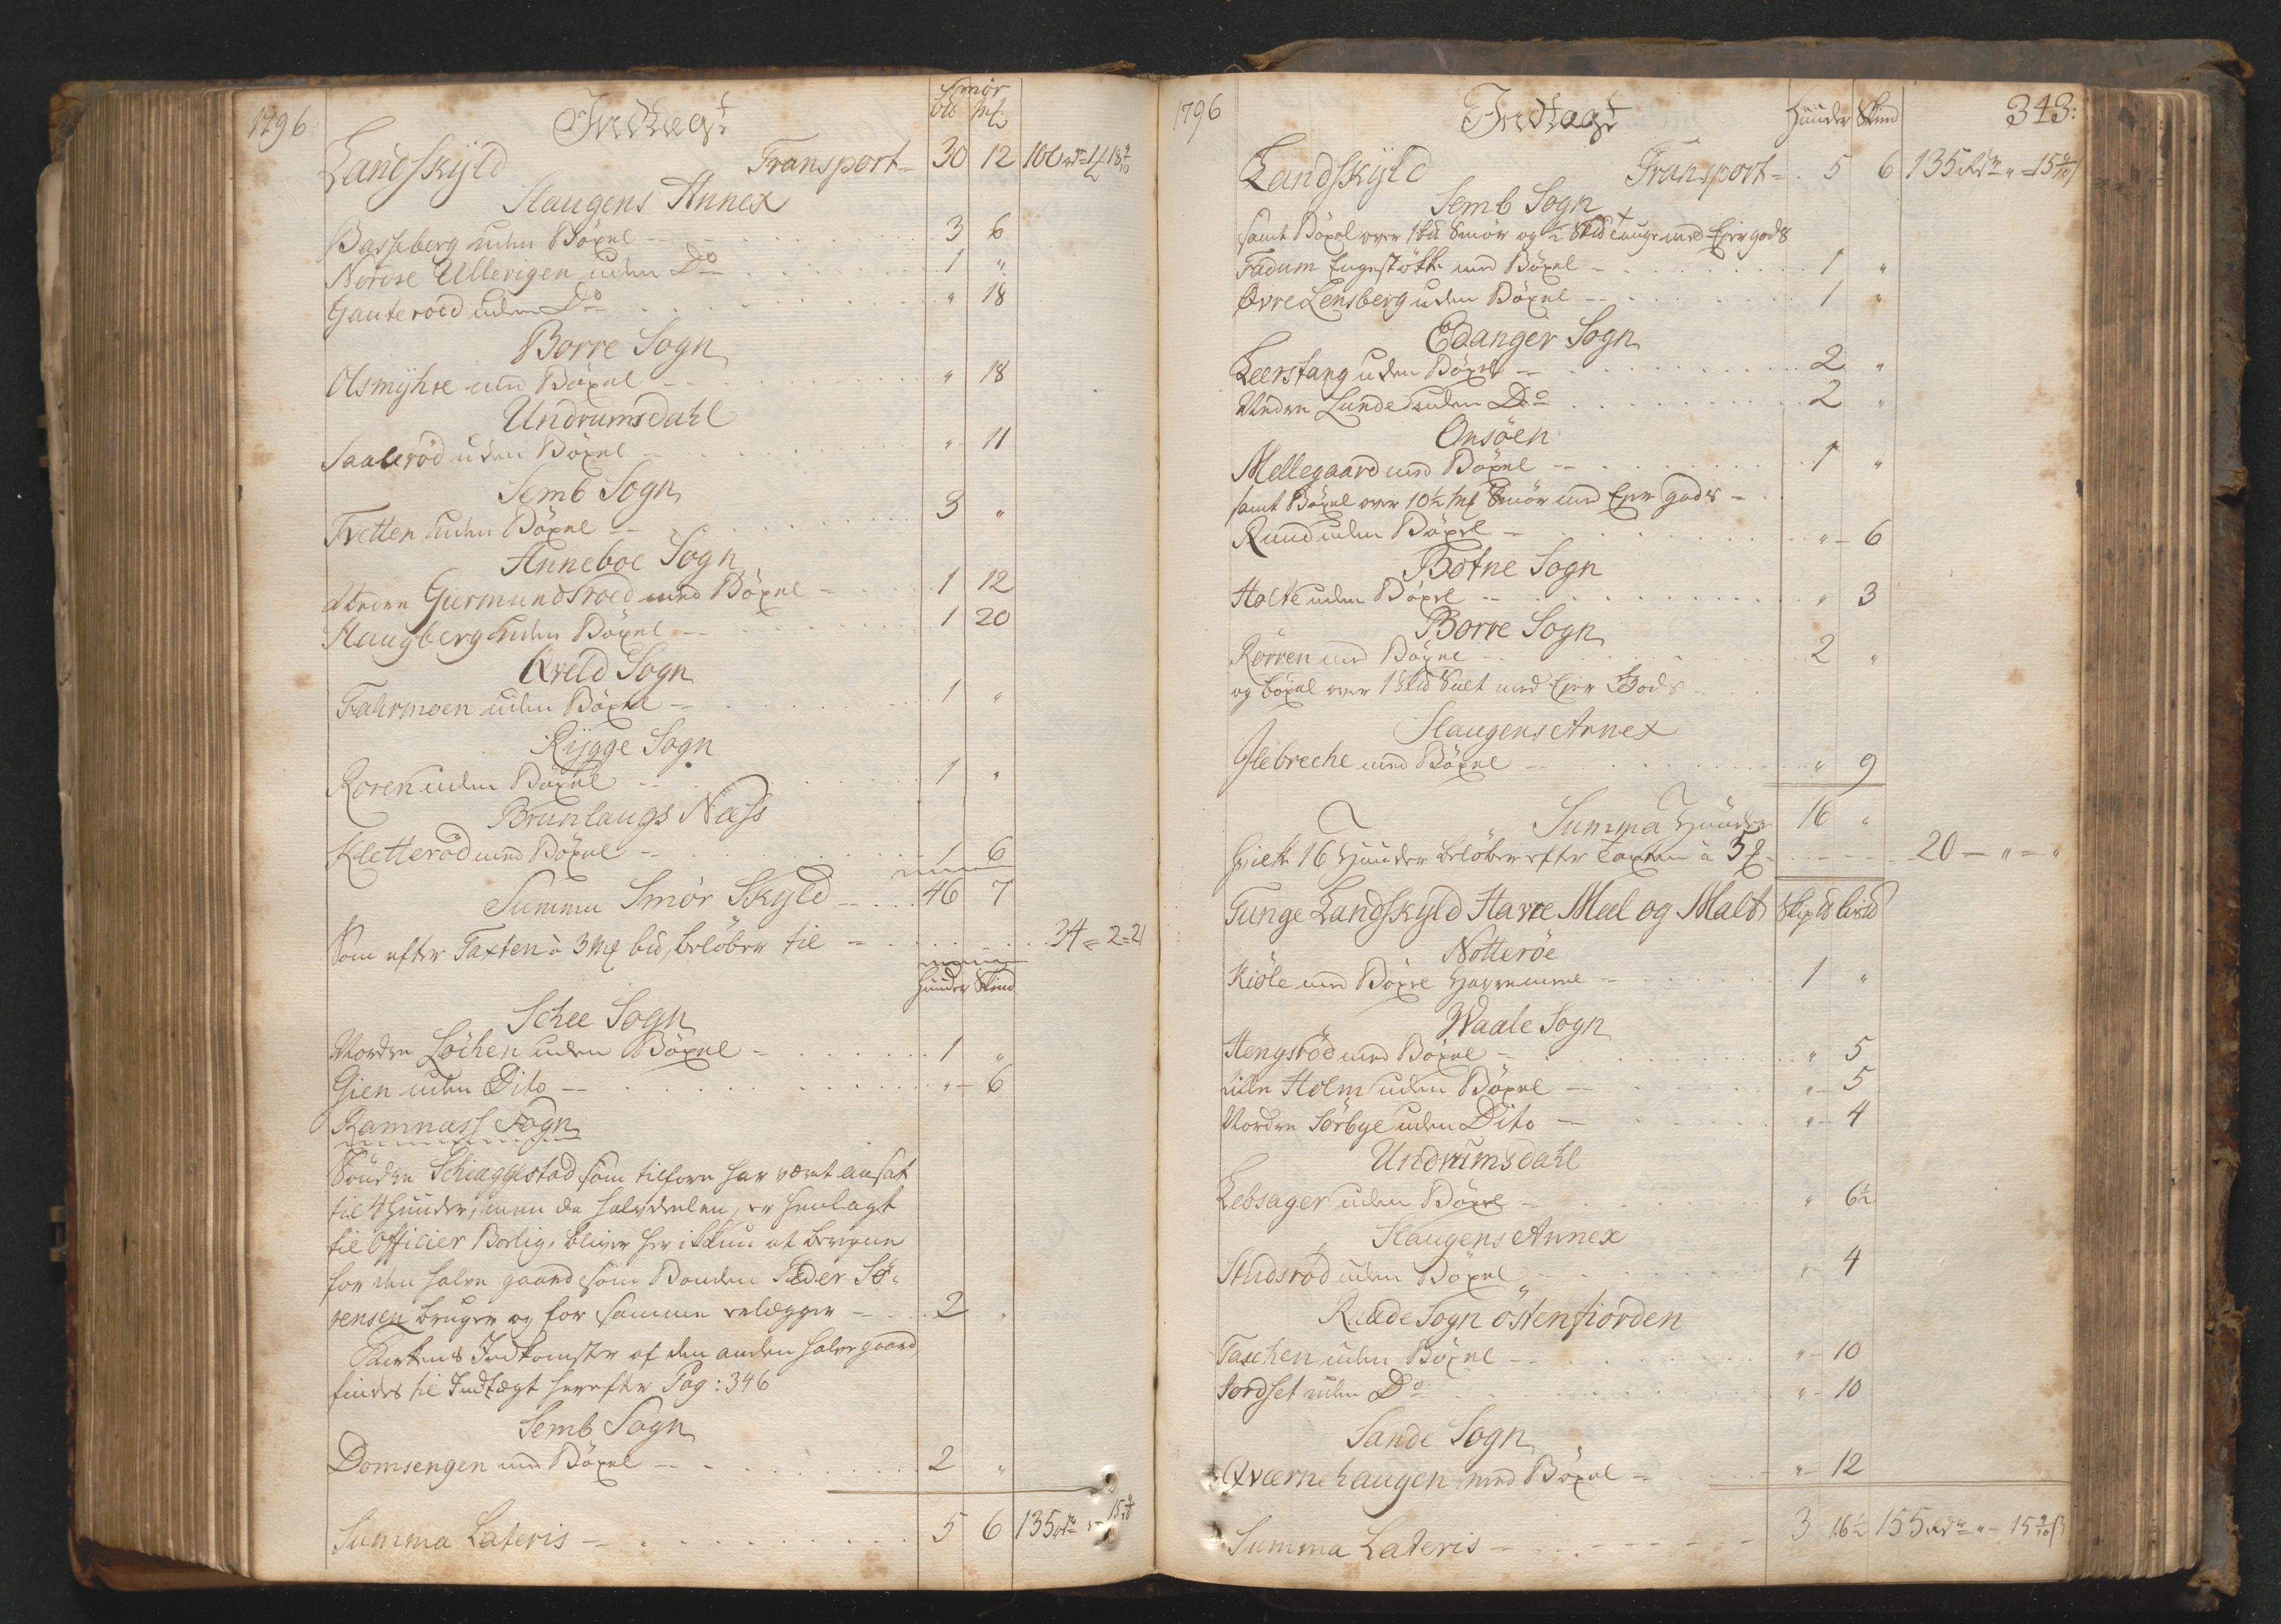 1796 Indtægt Smör
bd mk
Landskyld Transport = 30 12
Slaugens Annex
Basseberg uden Böxel 3 6
Nordre Ullevigen uden Do 1 "
Gauteroed uden Do " 18
Borre Sogn
Olsmyhre uden Böxel " 18
Undrumsdahl
Saalerød uden Böxel " 11
Semb Sogn
Tvetten uden Böxel 3 "
Anneboe Sogn
Gurmundsroed med Böxel 1 12
Haugberg uden Böxel 1 20
Qveld Sogn
Fahrmoen uden Böxel 1 "
Rygge Sogn
Roren uden Böxel 1 "
Brunlaugs Næss
Kletterød med Böxel 1 6
Summa Smör Skyld 46 7
Som efter Taxten à 3 mk bd, beløber til 34 = 2 = 21
Huuder Skind
Schee Sogn
Nordre Löchen uden Böxel 1 "
Gien uden Dito " 6
Ramnass Sogn
Søndre Schiaggestad som tilforn har været ansat
til 4 Huuder, men da halvdeelen, er henlagt
til Officier Bolig, bliver her ikkun at beregne
for den halve gaard som Bonden Peder Sö-
rensen bruger og for samme erlægger 2 "
Kirkens Indkomster af den anden halve gaard
findes til Indtægt herefter Pag: 346
Semb Sogn
Domsengen med Böxel 2 "
Summa Lateris 5 6 135
1796 Indtægt Huuder Skind 343:
Landskyld Transport = 5 6 135 Rdr " 15 9/10 s
Semb Sogn
samt Böxel over 1 bd Smör og ½ med Ejergods
Fadum Engestökke med Böxel 1 "
Øvre Lensberg uden Böxel 1 "
Edanger Sogn
Leerstang uden Böxel 2 "
Nedre Lunde uden Do 2 "
Onsöen
Mellegaard med Böxel 1 "
samt Böxel over 10½ mk Smör med Ejer gods
Ruud uden Böxel " 6
Botne Sogn
Holte uden Böxel " 3
Borre Sogn
Rörren med Böxel 2 "
og böxel over 1 Salt med Ejer Gods
Slaugens Annex
Ilebreche med Böxel " 9
Summa Huuder 16 "
hvilke 16 Huuder beløber efter Taxten à 20 " "
Tunge Landskyld Havre Meel og Malt Skipd Lispd
Notteröe
Kiöle med Böxel Havremeel 1 "
Waale Sogn
Hengsröd med Böxel " 5
Lille Holm uden Böxel " 5
Nordre Sörbye uden Dito " 4
Undrumsdahl
Lebsager uden Böxel " 6½
Slaugens Annex
Studsröd uden Böxel " 4
Raade Sogn östenfiorden
Taschen uden Böxel " 10
Jordset uden Do " 10
Sande Sogn
Qværnehaugen med Böxel " 12
Summa Lateris 3 16½ 155 Rdr " 15 9/10 s